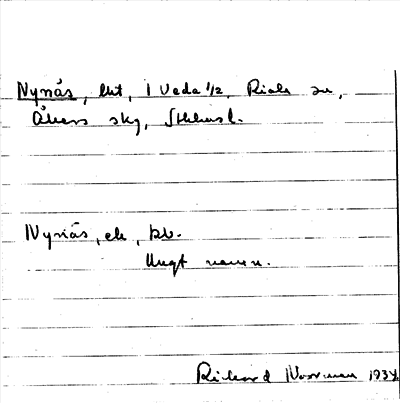 Nynäs, lht, i Veda 1/2, Riala sn,
Åkers skg, Sthlms l.
Nynäs, ek, kb.
Ungt namn.
Rickard Norrman 1934